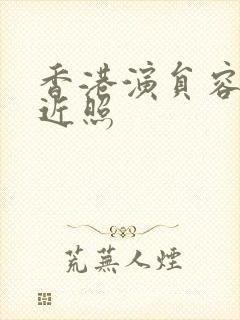 香港演員容
近照
荒蕪人煙